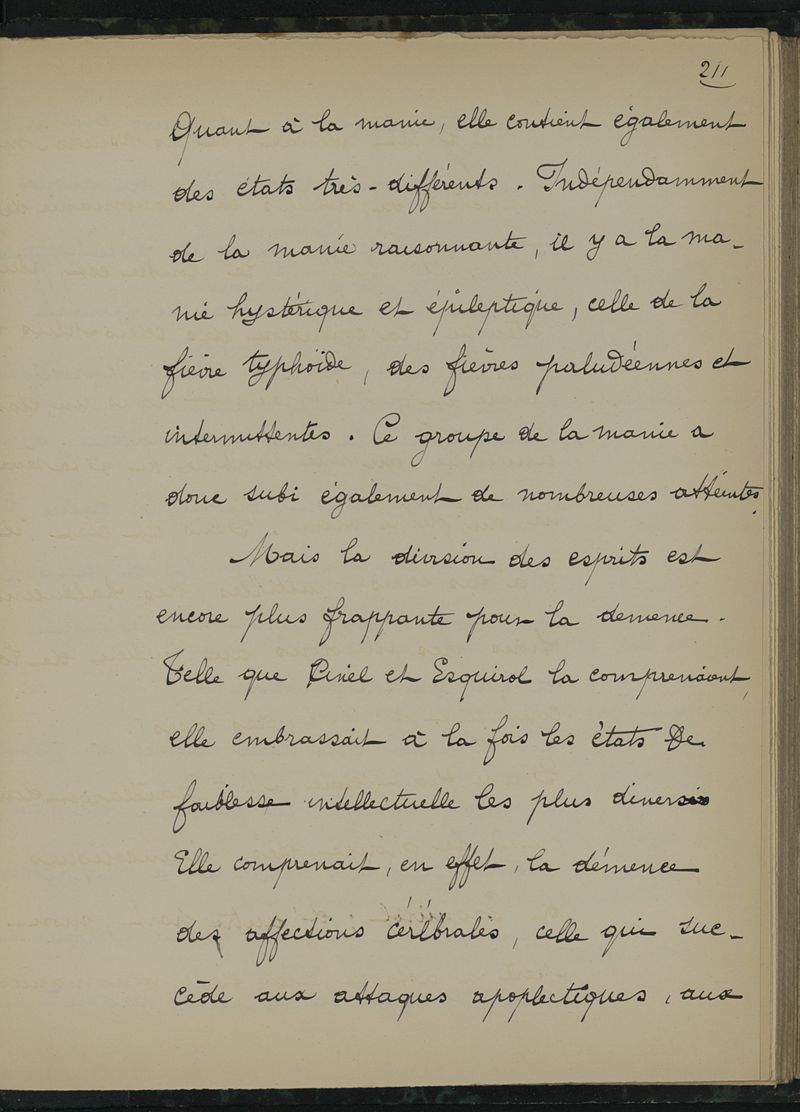 211
Quant à la manie, elle contient également
des états très-différents. Indépendamment
de la manie raisonnante, il y a la ma-
nie hystérique et épileptique, celle de la
fièvre typhoïde, des fièvres paludéennes et
intermittentes. Ce groupe de la manie a
donc subi également de nombreuses atteintes.
Mais la division des esprits est
encore plus frappante pour la demence.
Telle que Pinel et Esquirol la comprenaient,
elle embrassait à la fois les états de
faiblesse intellectuelle les plus divers
Elle comprenait, en effet, la démence
des affections cérébrales, celle qui suc-
cède aux attaques apoplectiques, aux